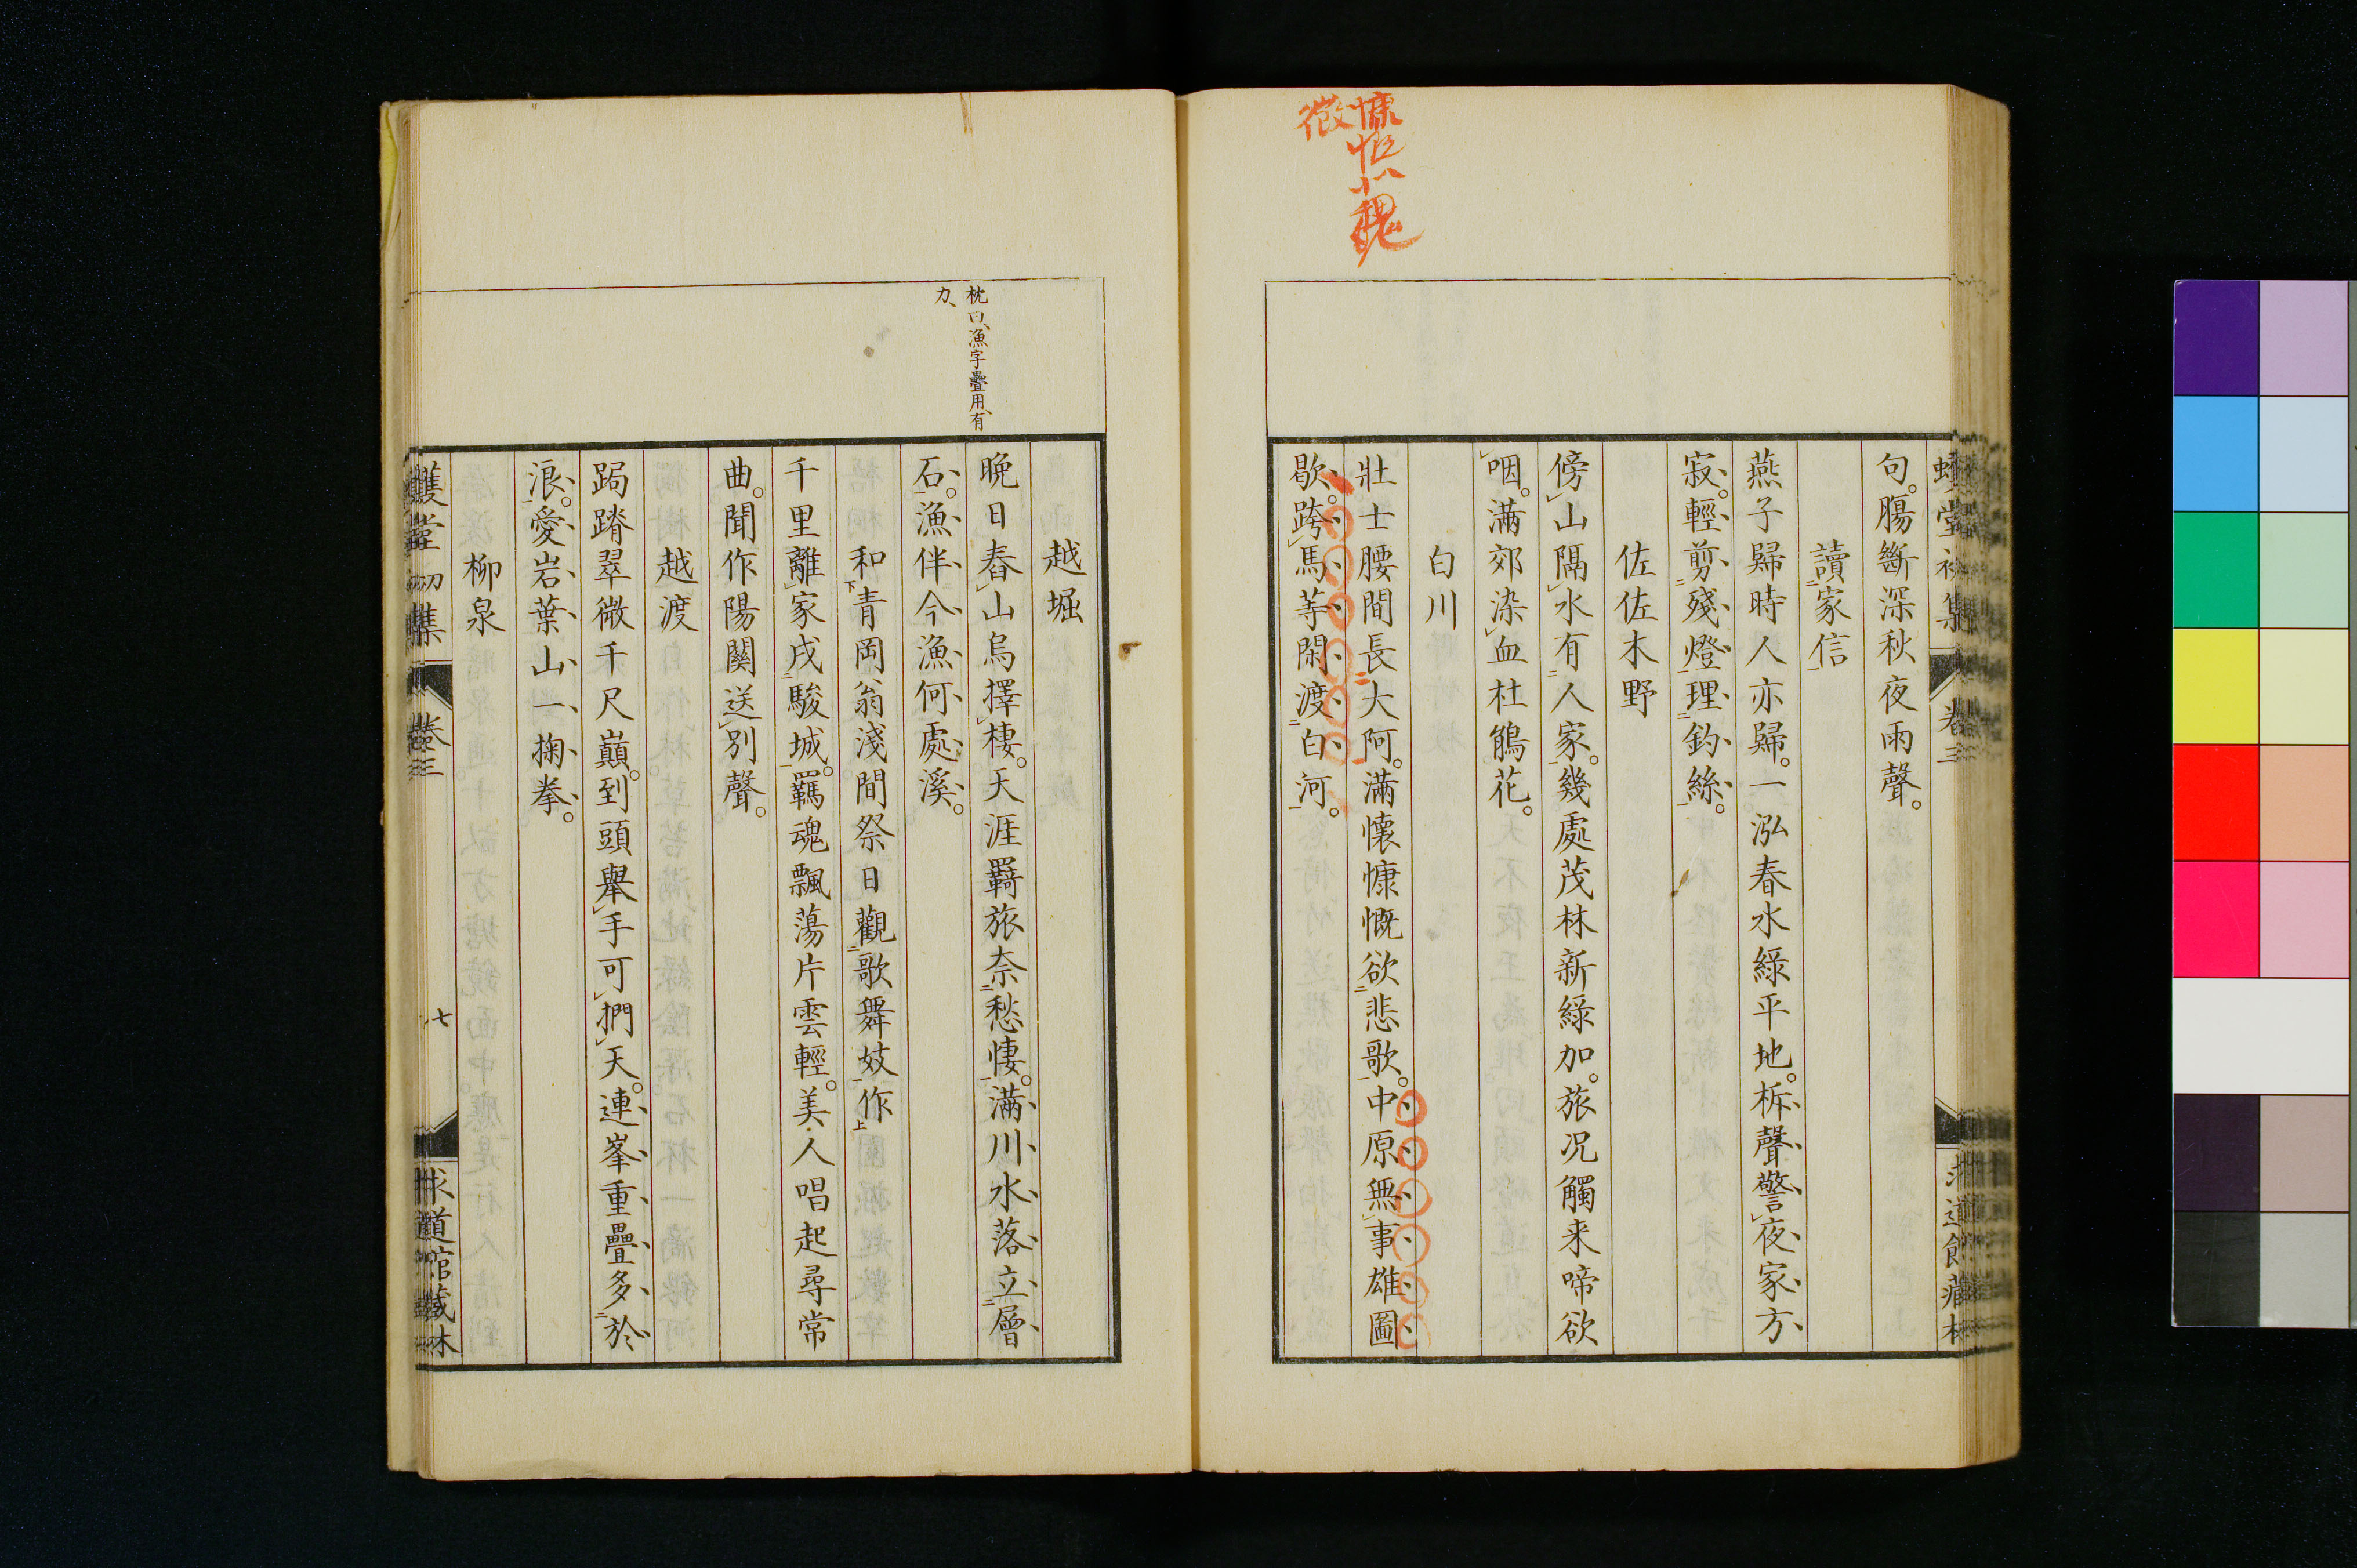 句。腸斷深秋夜雨聲。
讀家信
燕子歸時人亦歸。一泓春水綠平地。柝聲警夜家方
寂。輕剪殘燈理釣絲。
佐佐木野
傍山隔水有人家。幾處茂林新綠加。旅況觸来啼欲
咽。滿郊染血杜鵑花。
白川
壯士腰間長大阿。滿懷慷慨欲悲歌。中原無事雄圖
歇。跨馬等閑渡白河。
越堀
枕曰、漁字疊用、有
力、
晚日舂山烏擇棲。天涯羇旅奈愁悽。滿川水落立層
石。漁伴今漁何處溪。
和青岡翁淺間祭日觀歌舞妓作
千里離家戌駿城。羈魂飄蕩片雲輕。美人唱起尋常
曲。聞作陽關送別聲。
越渡
跼蹐翠微千尺巔。到頭舉手可捫天。連峯重疊多於
浪。愛岩葉山一掬拳。
柳泉
卷三
七
求道館藏